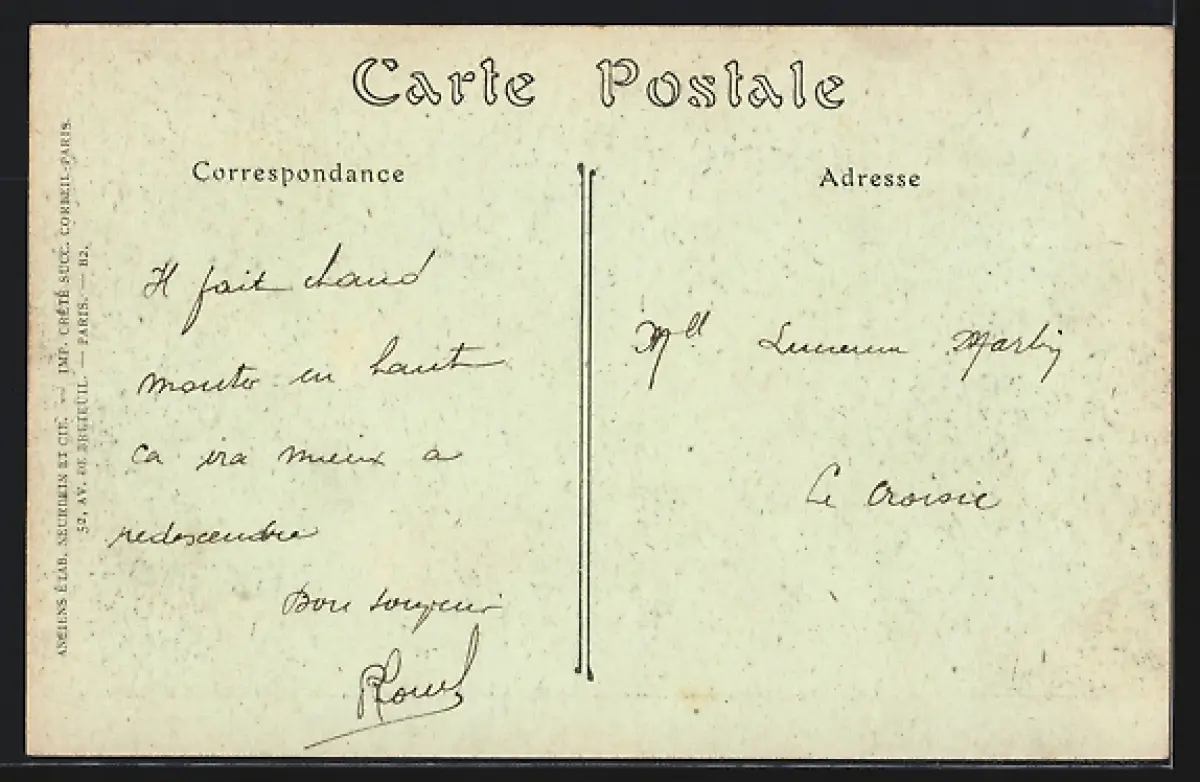 Carte Postale
Correspondance
Il fait chaud
monter en haut
ca ira mieux a
redescendre
Bon souvenir
Adresse
Mll Martin
Le Croisic
ANCIENS ÉTAB. NEURDEIN ET CIE. — IMP. CRÉTÉ SUCC. CORBEIL-PARIS.
52, AV. DE BRETEUIL. — PARIS. — B2.